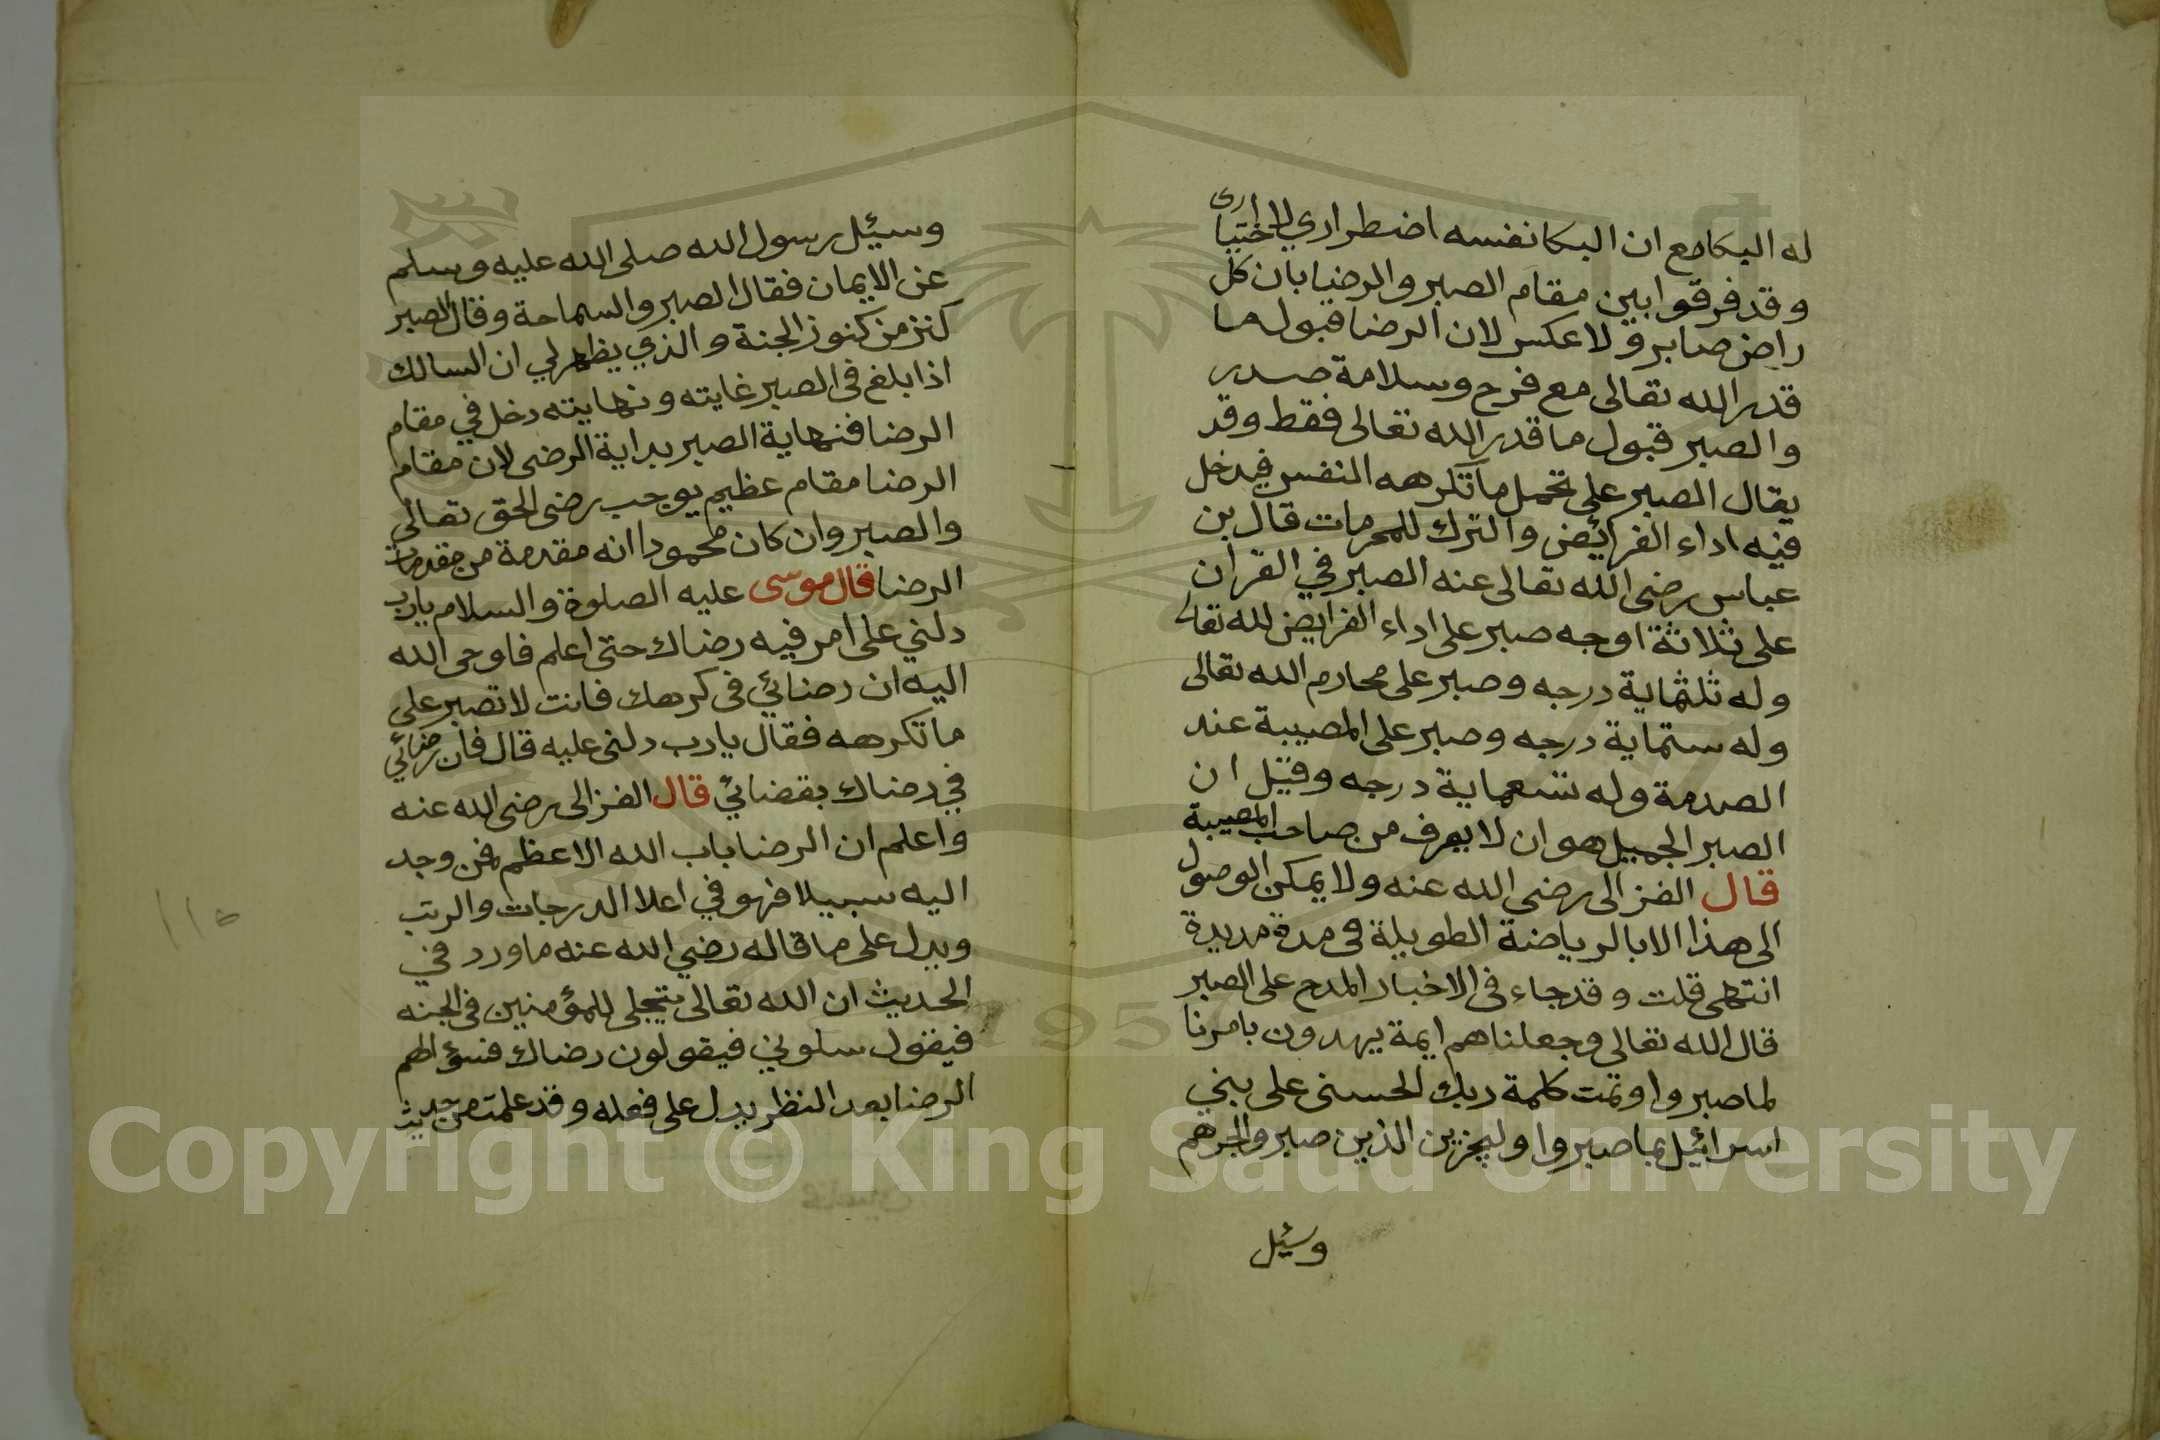 له البكا مع ان البكا نفسه اضطراري لا اختيارى
وقد فرقوا بين مقام الصبر والرضا بان كل
راض صابر ولا عكس لان الرضا قبول ما
قدر الله تعالى مع فرح وسلامة صدر
والصبر قبول ما قدر الله تعالى فقط وقد
يقال الصبر على تحمل ما تكرهه النفس فيدخل
فيه اداء الفرائض والترك للمحرمات قال بن
عباس رضى الله تعالى عنه الصبر في القران
على ثلاثة اوجه صبر على اداء الفرايض لله تعالى
وله ثلثماية درجه وصبر على محارم الله تعالى
وله ستماية درجه وصبر على المصيبة عند
الصدمة وله تسعماية درجه وقيل ان
الصبر الجميل هو ان لا يعرف من صاحب المصيبة
قال الغزالى رضى الله عنه ولا يمكن الوصول
الى هذا الا بالرياضة الطويلة فى مدة مديدة
انتهى قلت وقد جاء فى الاخبار المدح على الصبر
قال الله تعالى وجعلناهم ايمة يهدون بامرنا
لما صبروا وتمت كلمة ربك الحسنى على بني
اسرائيل بما صبروا وليجزين الذين صبروا اجرهم
وسئيل
وسئيل رسول الله صلى الله عليه وسلم
عن الايمان فقال الصبر والسماحة وقال الصبر
كنز من كنوز الجنة والذي يظهر لي ان السالك
اذا بلغ فى الصبر غايته ونهايته دخل في مقام
الرضا فنهاية الصبر بداية الرضى لان مقام
الرضا مقام عظيم يوجب رضى الحق تعالى
والصبر وان كان محمودا انه مقدمة من مقدمات
الرضا قال موسى عليه الصلوة والسلام يارب
دلني على امر فيه رضاك حتى اعلم فاوحى الله
اليه ان رضائي فى كرهك فانت لا تصبر على
ما تكرهه فقال يارب دلنى عليه قال فان رضائي
في رضاك بقضائي قال الغزالى رضى الله عنه
واعلم ان الرضا باب الله الاعظم فمن وجد
اليه سبيلا فهو في اعلا الدرجات والرتب
ويدل على ما قاله رضي الله عنه ما ورد في
الحديث ان الله تعالى يتجلى للمؤمنين فى الجنه
فيقول سلوني فيقولون رضاك فسؤالهم
الرضا بعد النظر يدل على فعله وقد علمت من حديث
١١٥
1957
Copyright © King Saud University